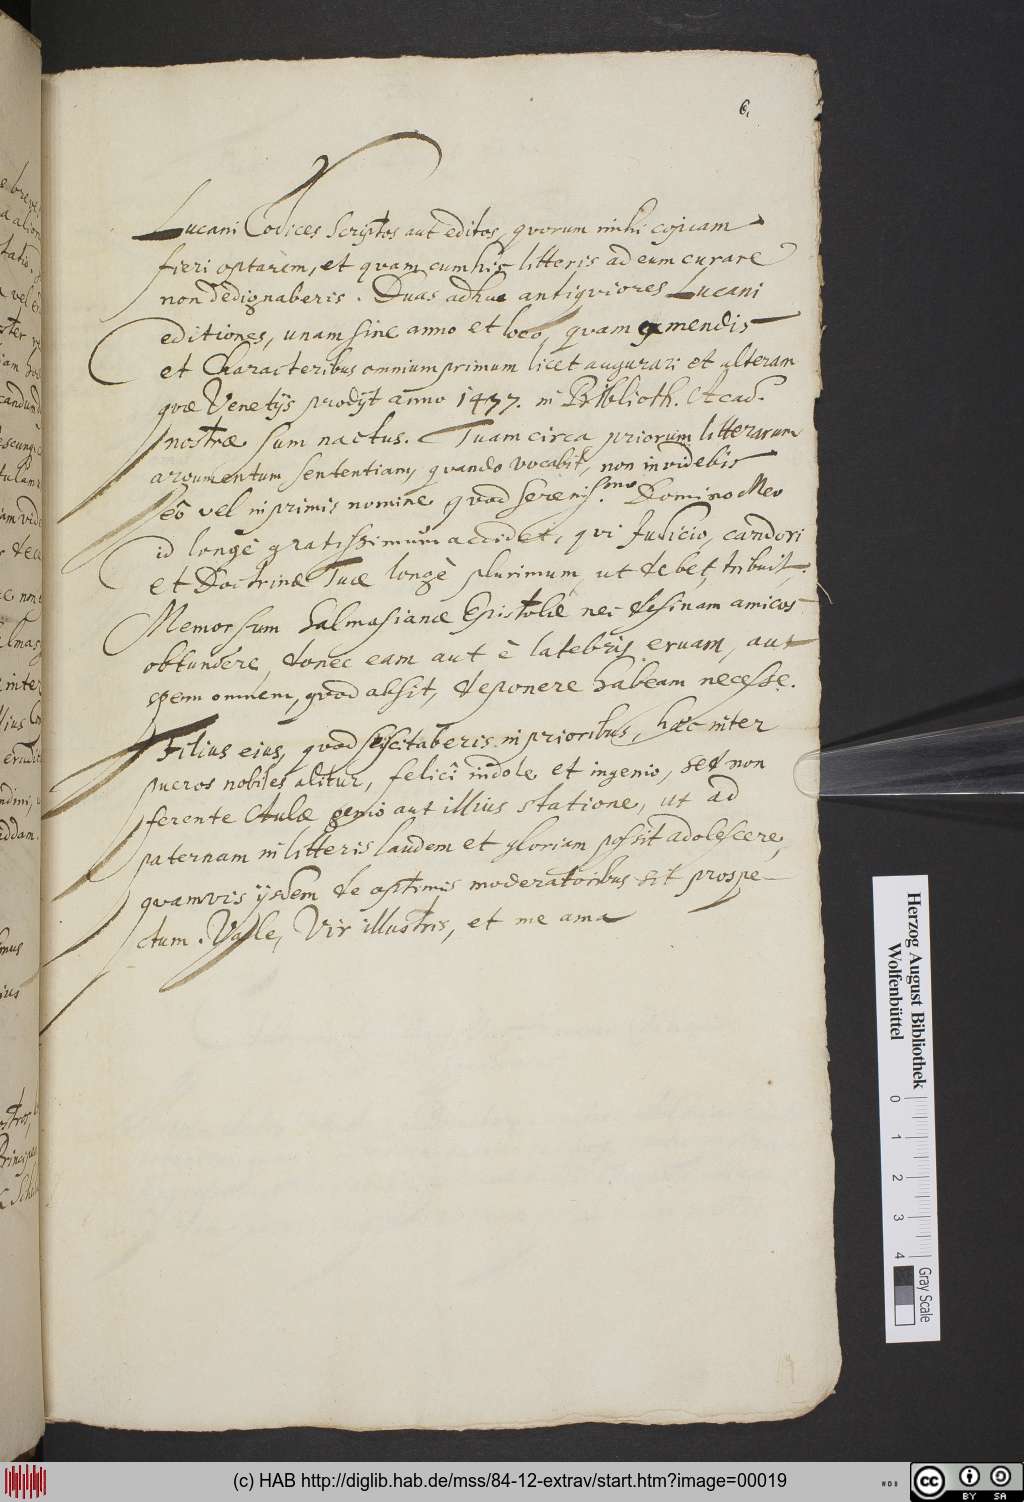 6.
Lucani Codices Scriptos aut editos, quorum mihi copiam
fieri optarem, et quam cum his litteris ad eum curare
non dedignaberis. Duas adhuc antiquiores Lucani
editiones, unam sine anno et loco, quam ex mendis
et characteribus omnium primum licet augurari et alteram
quæ Venetijs prodijt anno 1477. in Biblioth. Acad.
nostræ sum nactus. Tuam circa priorum litterarum
argumentum sententiam, quando vocabit, non invidebis
eô vel inprimis nomine, quod sereniss.mo Domino Meo
id longè gratissimum accidet, qui Judicio, candori
et Doctrinæ Tuæ longè plurimum, ut debet, tribuit.
Memor sum Salmasianæ Epistolæ nec desinam amicos
obtundere, donec eam aut è latebris eruam, aut
spem omnem, quod absit, deponere habeam necesse.
Filius eius, quod sciscitaberis in prioribus, hæc inter
pueros nobiles alitur, felici indole et ingenio, sed non
ferente Aulæ genio aut illius statione, ut ad
paternam in litteris laudem et gloriam possit adolescere,
quamvis ijsdem de optimis moderatoribus sit prospe-
ctum. Vale, Vir illustris, et me ama
Herzog August Bibliothek
Wolfenbüttel
0 1 2 3 4
Gray Scale
(c) HAB http://diglib.hab.de/mss/84-12-extrav/start.htm?image=00019
cc BY SA